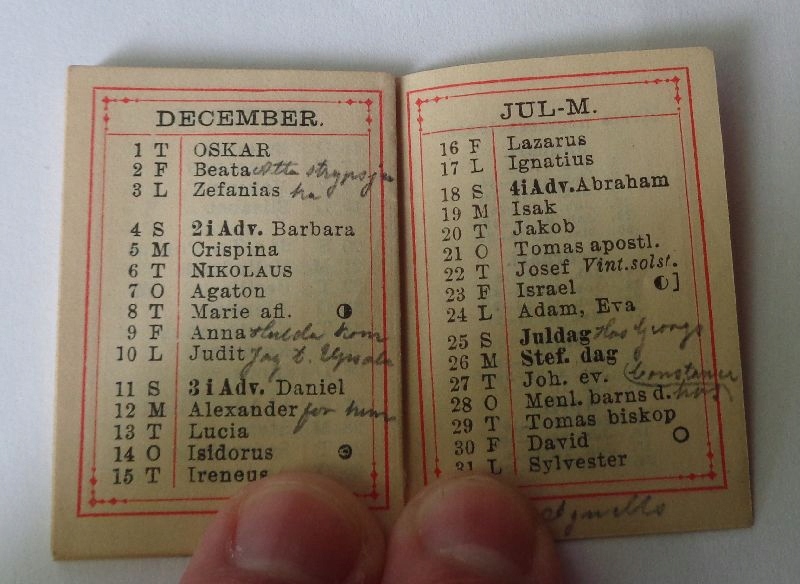 DECEMBER.
1 T OSKAR
2 F Beata
3 L Zefanias
4 S 2 i Adv. Barbara
5 M Crispina
6 T NIKOLAUS
7 O Agaton
8 T Marie afl.
9 F Anna Hulda kom
10 L Judit Jag t. Upsala
11 S 3 i Adv. Daniel
12 M Alexander for hem
13 T Lucia
14 O Isidorus
15 T Ireneus
JUL-M.
16 F Lazarus
17 L Ignatius
18 S 4 i Adv. Abraham
19 M Isak
20 T Jakob
21 O Tomas apostl.
22 T Josef Vint.solst.
23 F Israel ]
24 L Adam, Eva
25 S Juldag Hos Georgs
26 M Stef. dag
27 T Joh. ev. Constance
28 O Menl. barns d. hos
29 T Tomas biskop
30 F David
31 L Sylvester